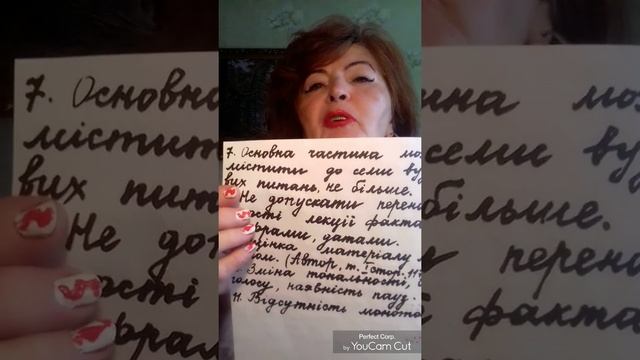 7. Основна частина мо
містити до семи ву
вих питань, не більше.
Не допускати перена
сті лекції факта
рами, датами.
інка матеріалу
ом. (Автор, т. І стор. 117
Зміна тональності,
голосу, наявність пауз.
11. Відсутність монота
Perfect Corp.
by YouCam Cut